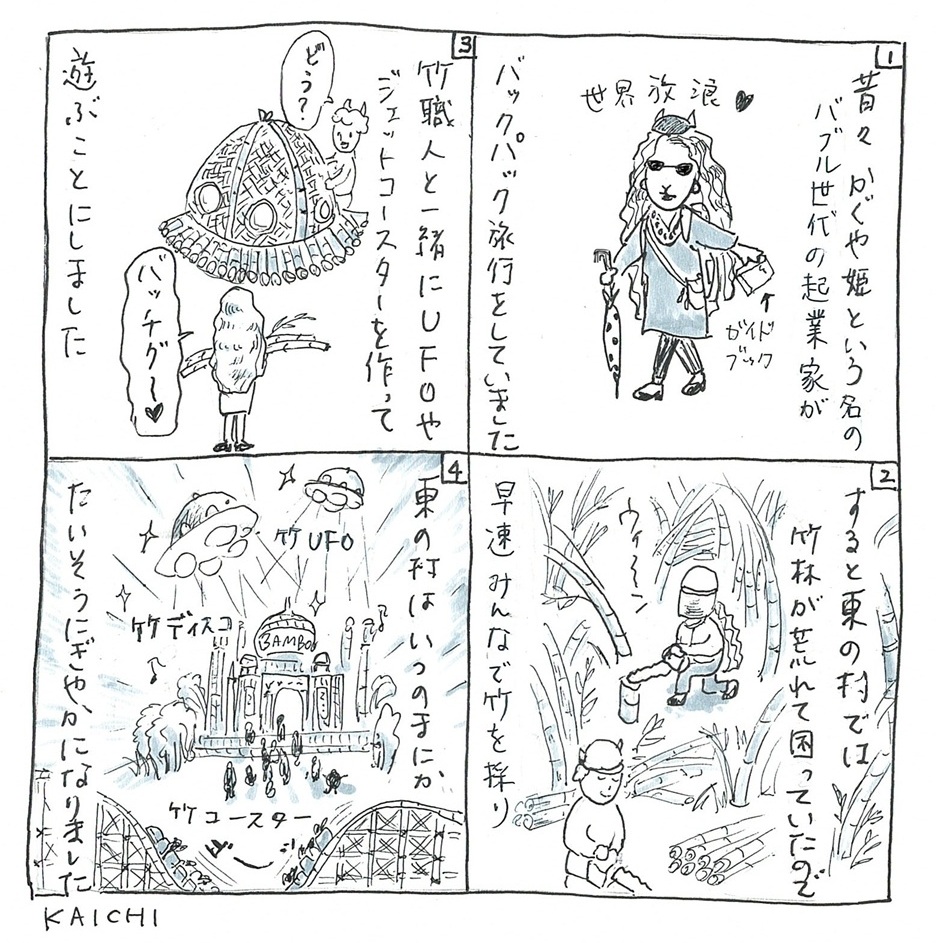 1
昔々 かぐや姫という名の
バブル世代の起業家が
世界放浪♥
ガイド
ブック
バックパック旅行をしていました
2
すると東の村では
竹林が荒れて困っていたので
ウィ〜ン
早速 みんなで竹を採り
3
竹職人と一緒にUFOや
ジェットコースターを作って
どう?
バッチグ〜♥
遊ぶことにしました
4
東の村はいつのまにか
竹UFO
竹ディスコ
BAMBOO
竹コースター
ゴーゴー
たいそうにぎやかになりました
KAICHI